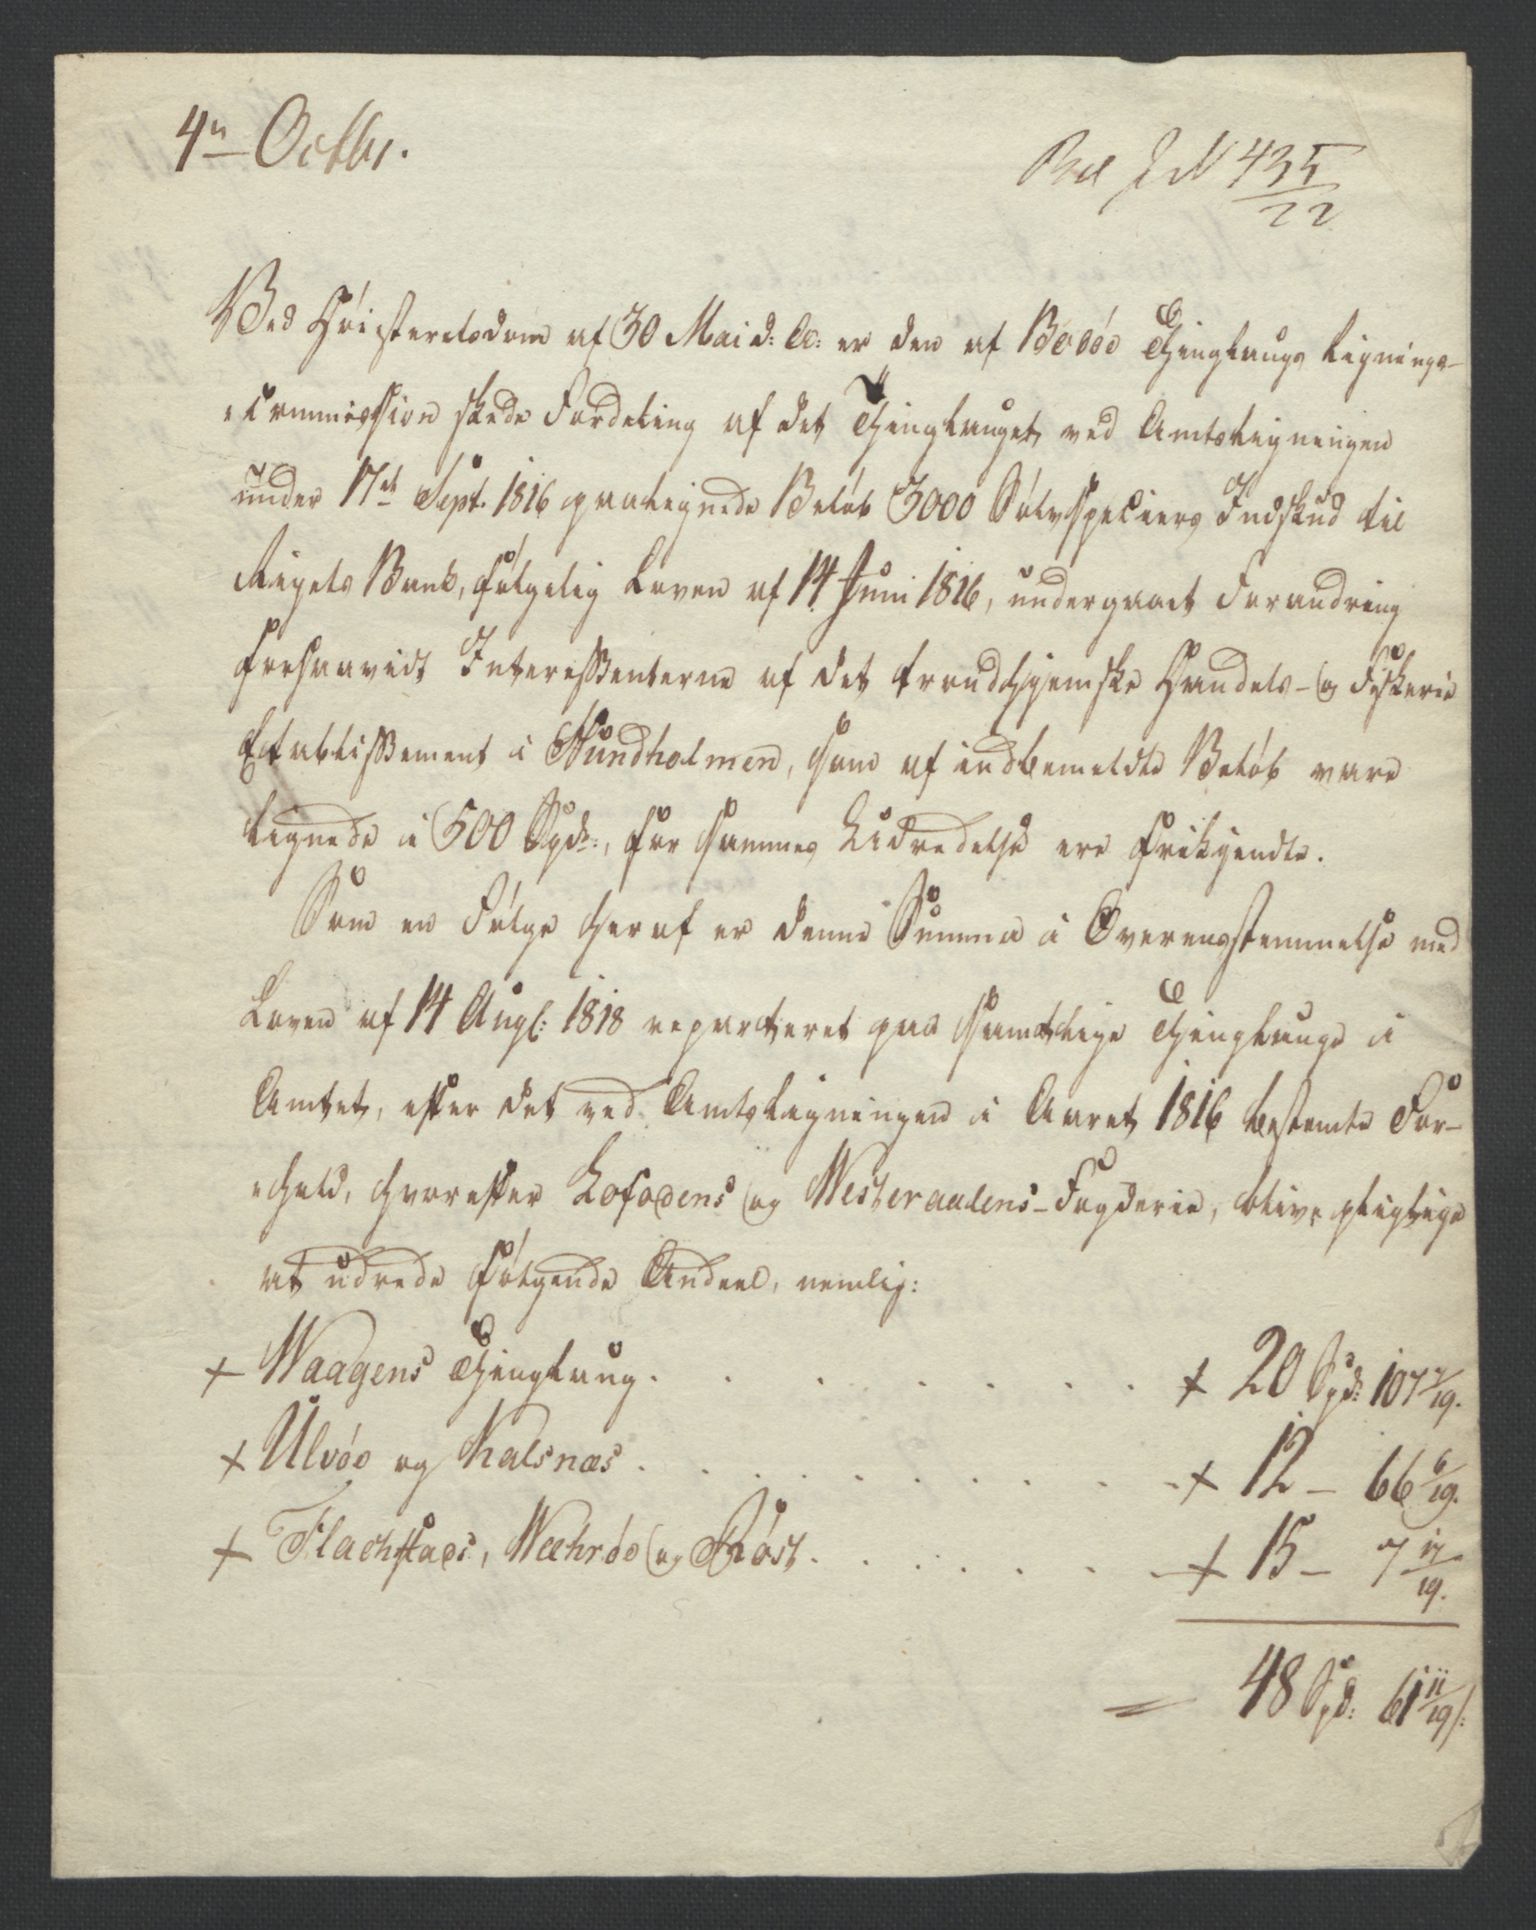 4n Octbr.
Bd J N 435/22
Ved Høiesteretsdom af 30 Mai d: A: er den af Bodøe Thinglaugs Lignings-
-commission skede Fordeling af det Thinglauget ved Amtsligningen
under 17de Sept. 1816 paalignede Beløb 3000 Sølvspeciers Indskud til
Rigets Bank, følgelig Loven af 14 Juni 1816, undergaaet Forandring
forsaavidt Interessenterne af det trondhjemske Handels- og Fiskerie
Etablissement i Hundholmen, som af indbemeldte Beløb vare
lignede i 500 Spd:, for sammes Udredelse ere frikjendte.
Som en Følge heraf er denne Summa i Overensstemmelse med
Loven af 14 Augs: 1818 reparteret paa samtlige Thinglauge i
Amtet, efter det ved Amtsligningen i Aaret 1816 bestemte For-
-hold, hvorefter Lofodens og Westeraalens-Fogderie, blive pligtige
at udrede følgende Andeel, nemlig:
+ Waagens Thinglaug . . . . . . . . + 20 Spd: 107 7/19.
+ Ulvøe og Kalsnæs . . . . . . . . + 12 – 66 6/19.
+ Flachstads, Wæhrøe og Røst . . . . . . + 15 – 7 17/19.
= 48 Spd: 61 11/19 s: